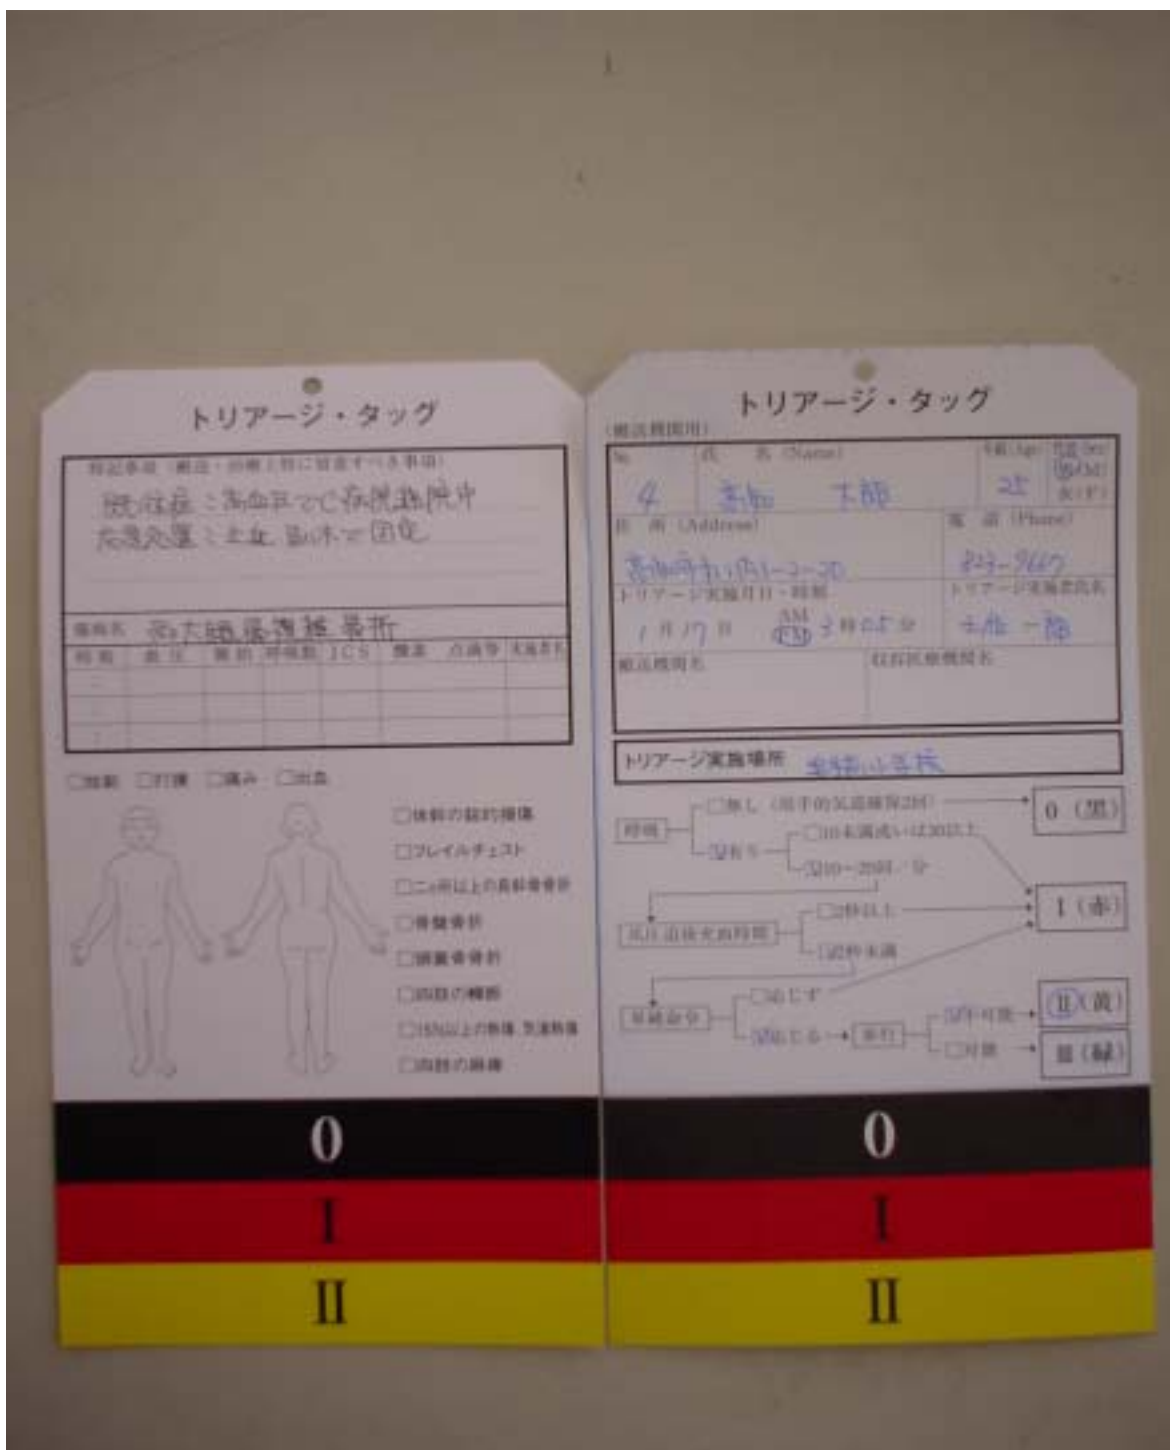 トリアージ・タッグ
特記事項(搬送・治療上特に留意すべき事項)
既往症:高血圧でC病院通院中
応急処置:止血 副木で固定
傷病名 右大腿部複雑骨折
時刻 血圧 脈拍 呼吸数 JCS 酸素 点滴等 実施者名
打撲 痛み 出血
体幹の鋭的損傷
フレイルチェスト
二ヶ所以上の長幹骨骨折
骨盤骨折
頭蓋骨骨折
四肢の轢断
15%以上の熱傷、気道熱傷
四肢の麻痺
0
I
II
トリアージ・タッグ
(搬送機関用)
No. 氏 名 (Name) 年齢(Age) 性別(Sex)
4 高知 太郎 25 男(M) 女(F)
住 所 (Address) 電 話 (Phone)
高知市丸ノ内1-2-20 823-9667
トリアージ実施月日・時刻 トリアージ実施者氏名
1月17日 AM PM 3時05分 土佐 一郎
搬送機関名 収容医療機関名
トリアージ実施場所 小学校
呼吸 無し(用手的気道確保2回) 0 (黒)
有り 10未満或いは30以上
10~29回/分
2秒以上 I (赤)
2秒未満
応じず
応じる 歩行 不可能 II (黄)
可能 III (緑)
0
I
II